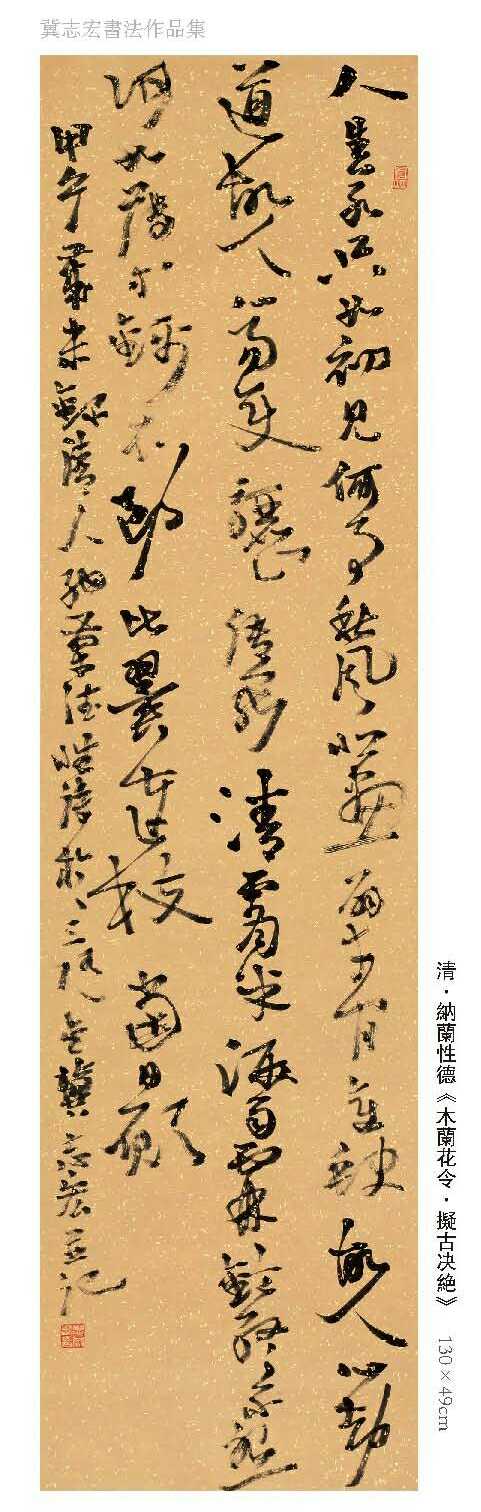 冀志宏書法作品集
人生若只如初見何事秋風悲畫扇等閑變卻故人心却
道故人心易變驪山語罷清宵半淚雨霖鈴終不怨
何如薄倖錦衣郎比翼連枝當日願
甲午歲末錄清人納蘭性德詞於三冀志宏並記
清·納蘭性德《木蘭花令·擬古决絶》 130×49cm